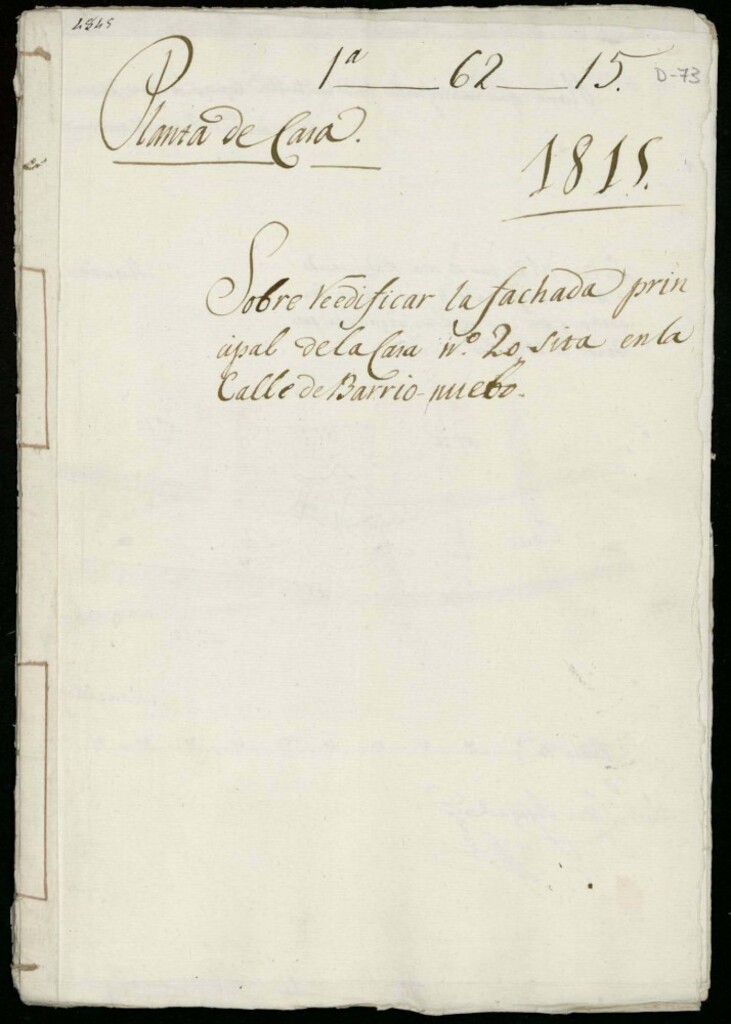 4845
1ª 62 15. D-73
Planta de Casa.
1815.
Sobre reedificar la fachada prin
cipal de la Casa nº. 20 sita en la
Calle de Barrio-nuebo.